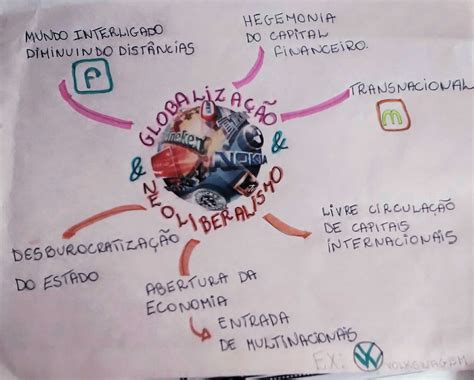 MUNDO INTERLIGADO
DIMINUINDO DISTÂNCIAS
HEGEMONIA
DO CAPITAL
FINANCEIRO.
TRANSNACIONAL
GLOBALIZAÇÃO
&
&
NEOLIBERALISMO
NOKIA
DESBUROCRATIZAÇÃO
DO ESTADO
ABERTURA DA
ECONOMIA
ENTRADA
DE MULTINACIONAIS
LIVRE CIRCULAÇÃO
DE CAPITAIS
INTERNACIONAIS
EX: VOLKSWAGEM